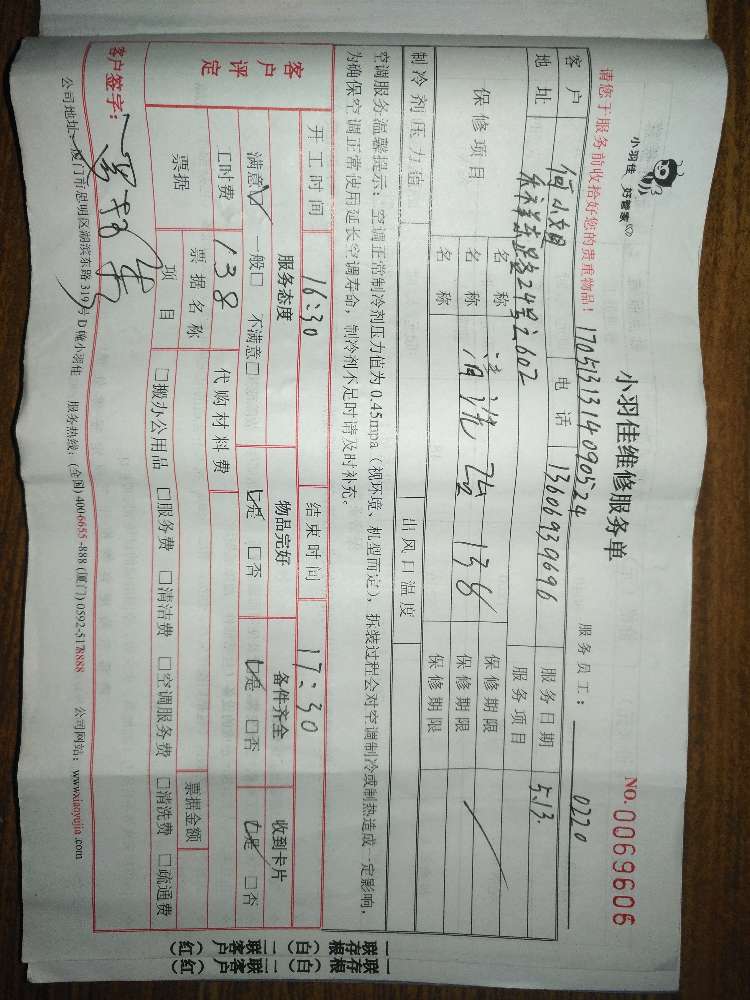 小羽佳 好管家
小羽佳维修服务单
NO. 0069606
请您于服务前收拾好您的贵重物品！
1705131314090524
服务员工： 0220
客户 电话 13606939696 服务日期 5.13.
地址 24号之602 服务项目
保修项目 名称 保修期限
名称 清洗 138 保修期限
名称 保修期限
制冷剂压力值 出风口温度
空调服务温馨提示：空调正常制冷剂压力值为0.45mpa（视环境、机型而定），拆装过程会对空调制冷或制热造成一定影响，
为确保空调正常使用延长空调寿命，制冷剂不足时请及时补充。
开工时间 16:30 结束时间 17:30
客户评定 服务态度 物品完好 备件齐全 收到卡片
满意☑ 一般□ 不满意□ ☑是 □否 ☑是 □否 ☑是 □否
□时费 138 代购材料费
票据 票据名称 票据金额
项目 □搬办公用品 □服务费 □清洁费 □空调服务费 □清洗费 □疏通费
客户签字：
公司地址：厦门市思明区湖滨东路319号D幢小羽佳 服务热线：(全国) 400-6655-888 (厦门) 0592-5178888 公司网站：www.xiaoyujia.com
一联存根（白）
二联客户（红）